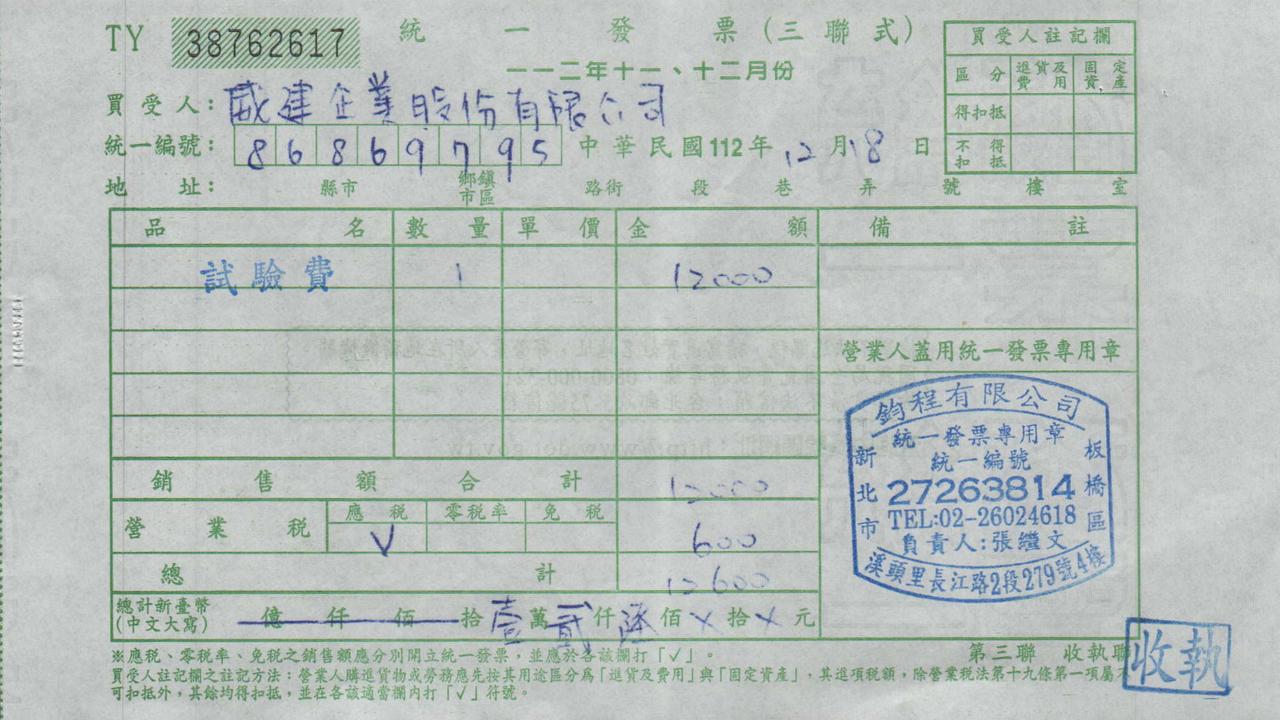 TY 38762617 統一發票(三聯式)
一一二年十一、十二月份
買受人註記欄
區分 進貨及費用 固定資產
得扣抵
不得扣抵
買受人:威建企業股份有限公司
統一編號:86869795 中華民國112年12月18日
地址: 縣市 鄉鎮市區 路街 段 巷 弄 號 樓 室
品名 數量 單價 金額 備註
試驗費 1 12000
營業人蓋用統一發票專用章
銷售額合計 12000
營業稅 應稅 零稅率 免稅
V 600
總計 12600
總計新臺幣(中文大寫) 億 仟 佰 拾 壹 萬 貳 仟 陸 佰 X 拾 X 元
鈞程有限公司
統一發票專用章
統一編號
27263814
TEL:02-26024618
負責人:張繼文
新北市 板橋區
溪頭里長江路2段279號4樓
※應稅、零稅率、免稅之銷售額應分別開立統一發票,並應於各該欄打「V」。
第三聯 收執聯
收執
買受人註記欄之註記方法:營業人購進貨物或勞務應先按其用途區分為「進貨及費用」與「固定資產」,其進項稅額,除營業稅法第十九條第一項屬不
可扣抵外,其餘均得扣抵,並在各該適當欄內打「V」符號。